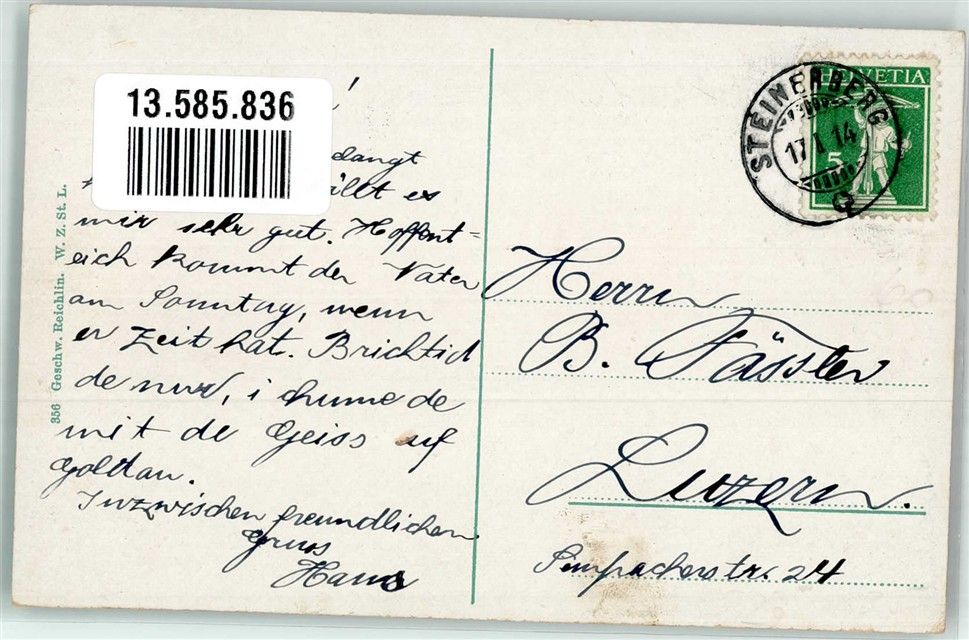 13.585.836
!
langt
ällt es
mir sehr gut. Hoffent=
lich kommt der Vater
am Sonntag, wenn
er Zeit hat. Brichtid
de nur, i chume de
mit de Geiss uf
Goldau.
Inzwischen freundlichen
Gruss
Hans
356 Geschw. Reichlin. W. Z. St. L.
HELVETIA
5
STEINERBERG
17 I 14
Herrn
B. Fässler
Luzern.
Sempacherstr. 24